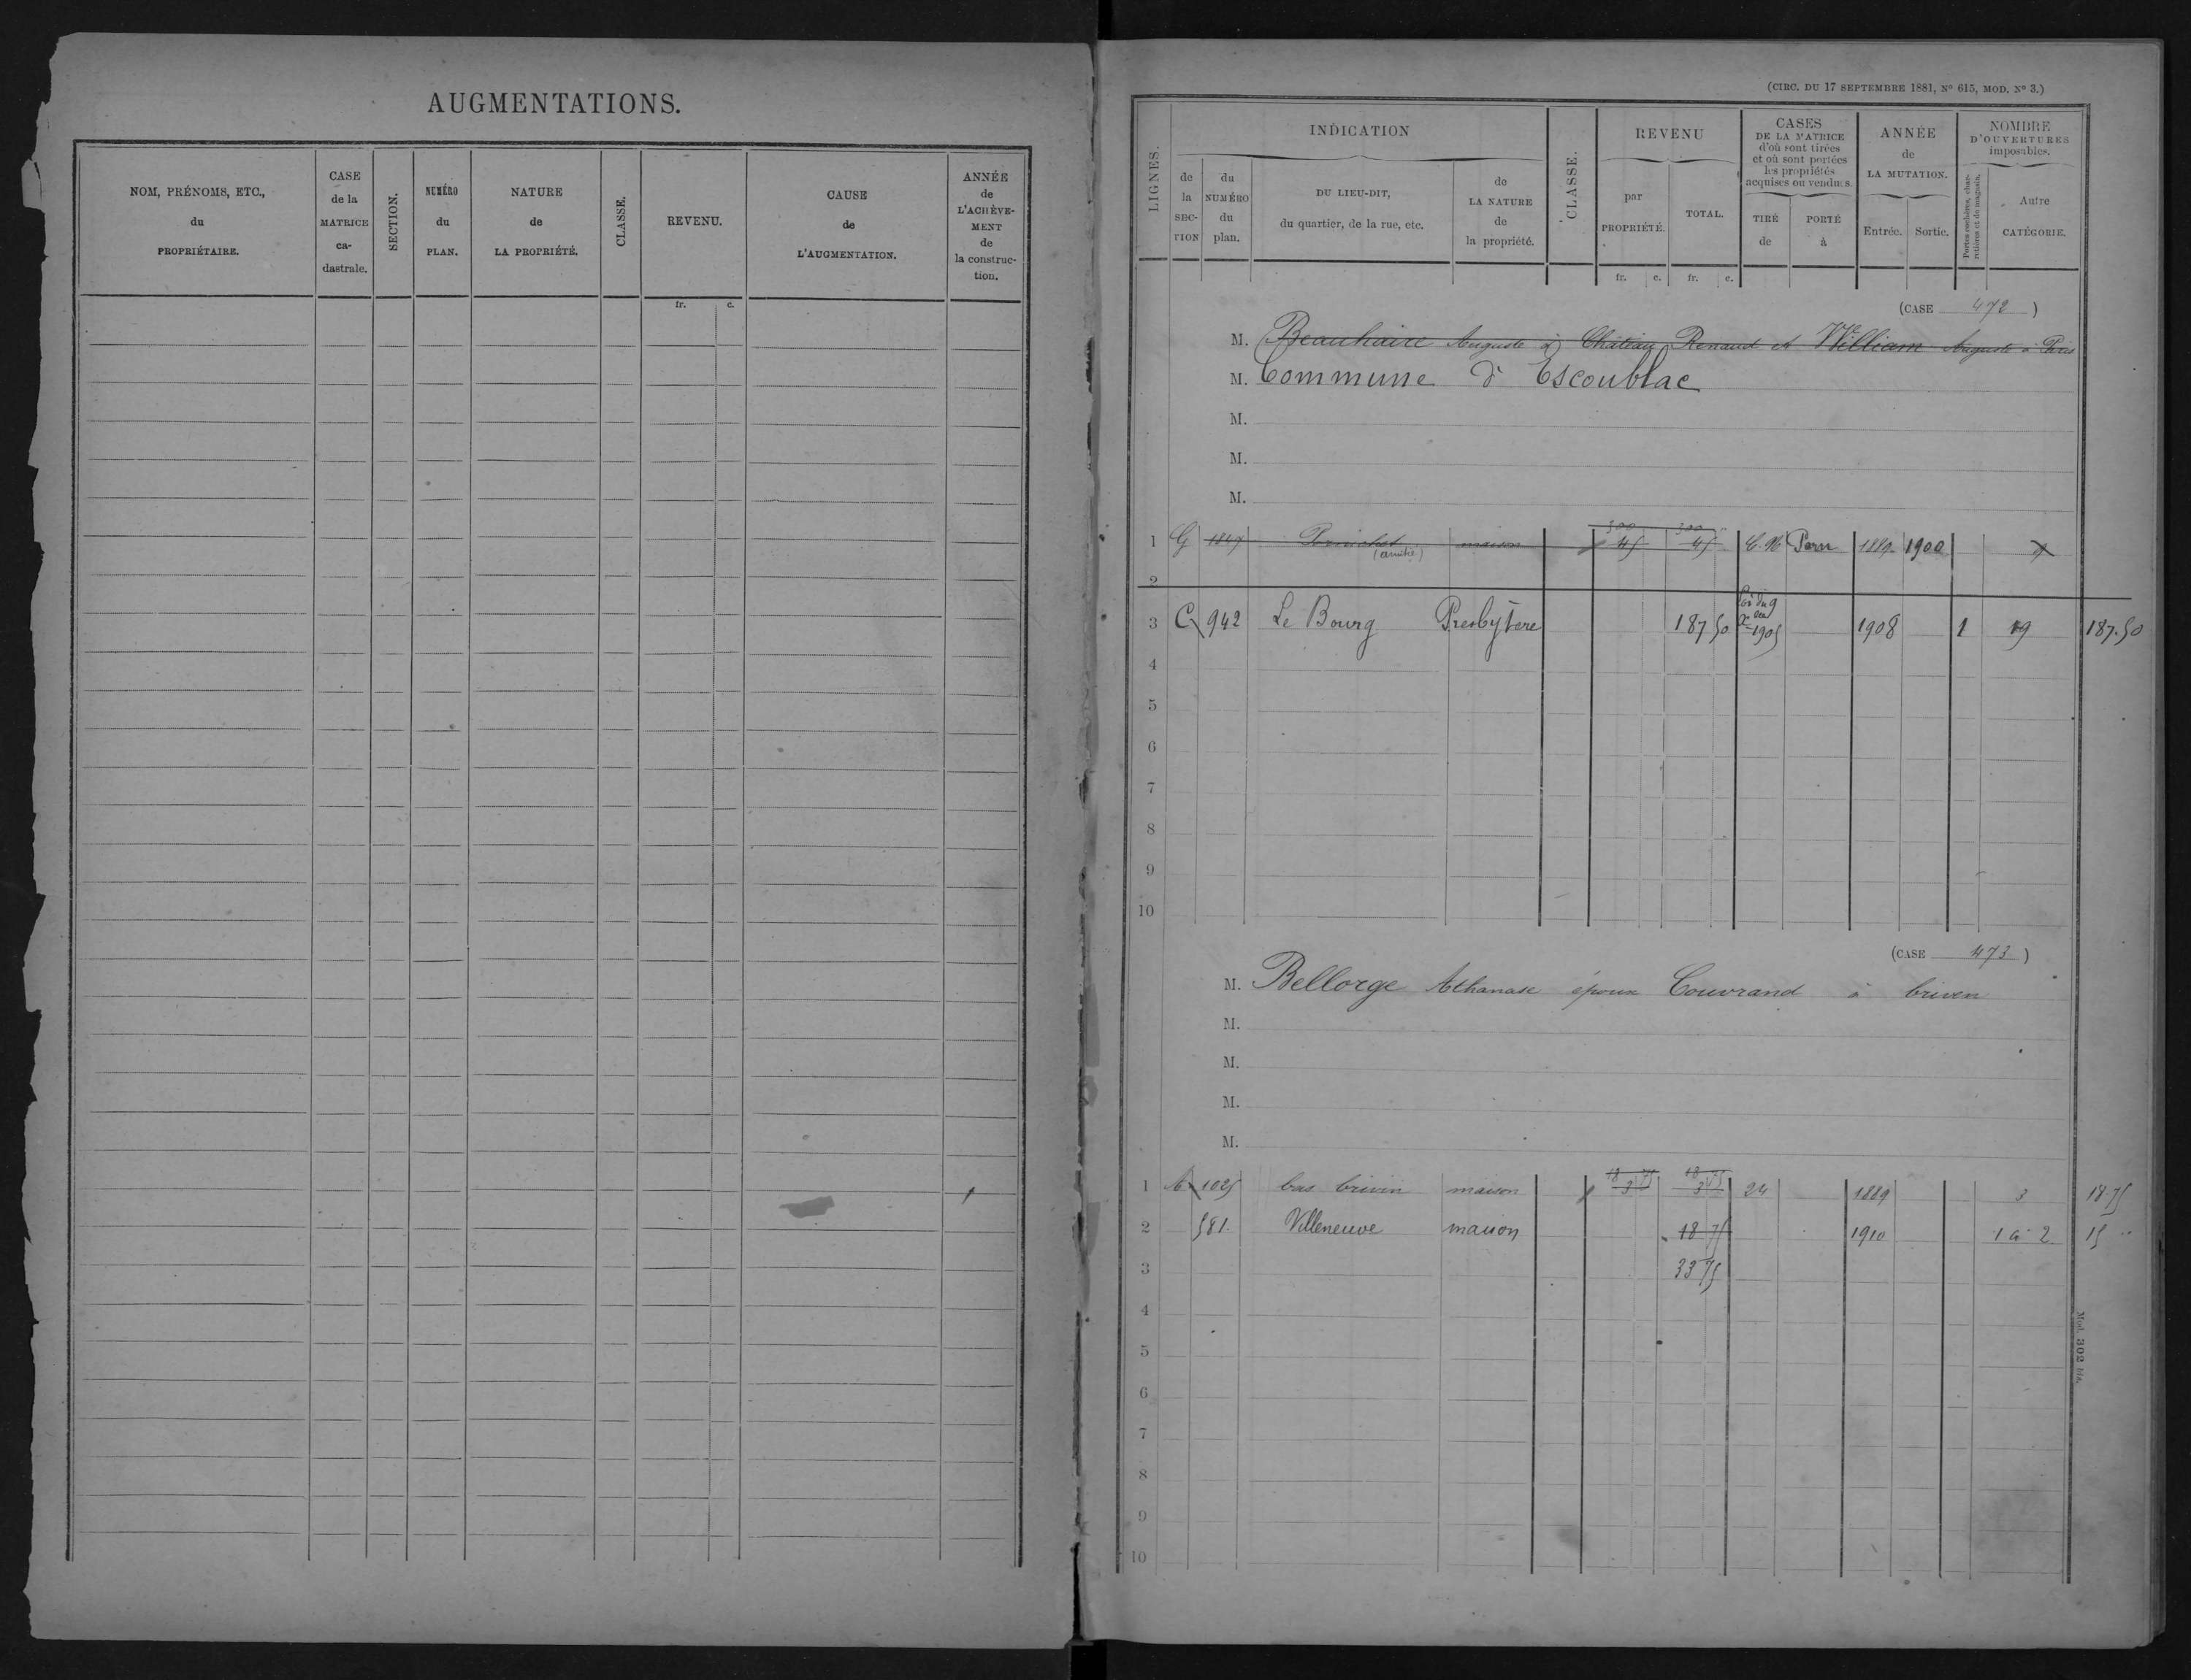 AUGMENTATIONS.
NOM, PRÉNOMS, ETC.,
du
PROPRIÉTAIRE.
CASE
de la
MATRICE
ca-
dastrale.
SECTION.
NUMÉRO
du
PLAN.
NATURE
de
LA PROPRIÉTÉ.
CLASSE.
REVENU.
CAUSE
de
L'AUGMENTATION.
ANNÉE
de
L'ACHÈVE-
MENT
de
la construc-
tion.
fr. c.
(CIRC. DU 17 SEPTEMBRE 1881, Nº 615, MOD. Nº 3.)
LIGNES.
INDICATION
de
la
SEC-
TION
du
NUMÉRO
du
plan.
DU LIEU-DIT,
du quartier, de la rue, etc.
de
LA NATURE
de
la propriété.
CLASSE.
REVENU
par
PROPRIÉTÉ.
TOTAL.
fr. c. fr. c.
CASES
DE LA MATRICE
d'où sont tirées
et où sont portées
les propriétés
acquises ou vendues.
TIRÉ
de
PORTÉ
à
ANNÉE
de
LA MUTATION.
Entrée. Sortie.
NOMBRE
D'OUVERTURES
imposables.
Portes cochères, char-
retières et de magasin.
Autre
CATÉGORIE.
(CASE 472 )
M. Beauhaire Auguste à Château Renaud et William Auguste à Paris
M. Commune d'Escoublac
M.
M.
M.
300 300
1 G 1847 Pornichet maison 45 45 C.N Porn 1889 1900
2
3 C 942 Le Bourg Presbytère 187 50 Loi du 9 Xbre 1905 1908 1 19 187.50
4
5
6
7
8
9
10
(CASE 473 )
M. Bellorge Athanase époux Couvrand à brivin
M.
M.
M.
M.
18 75 18 75
1 A 1025 bas brivin maison 3 3 24 1889 3 18.75
2 581 Villeneuve maison 18 75 1910 1 à 2 15
3 33 75
4
5
6
7
8
9
10
Mod. 302 bis.